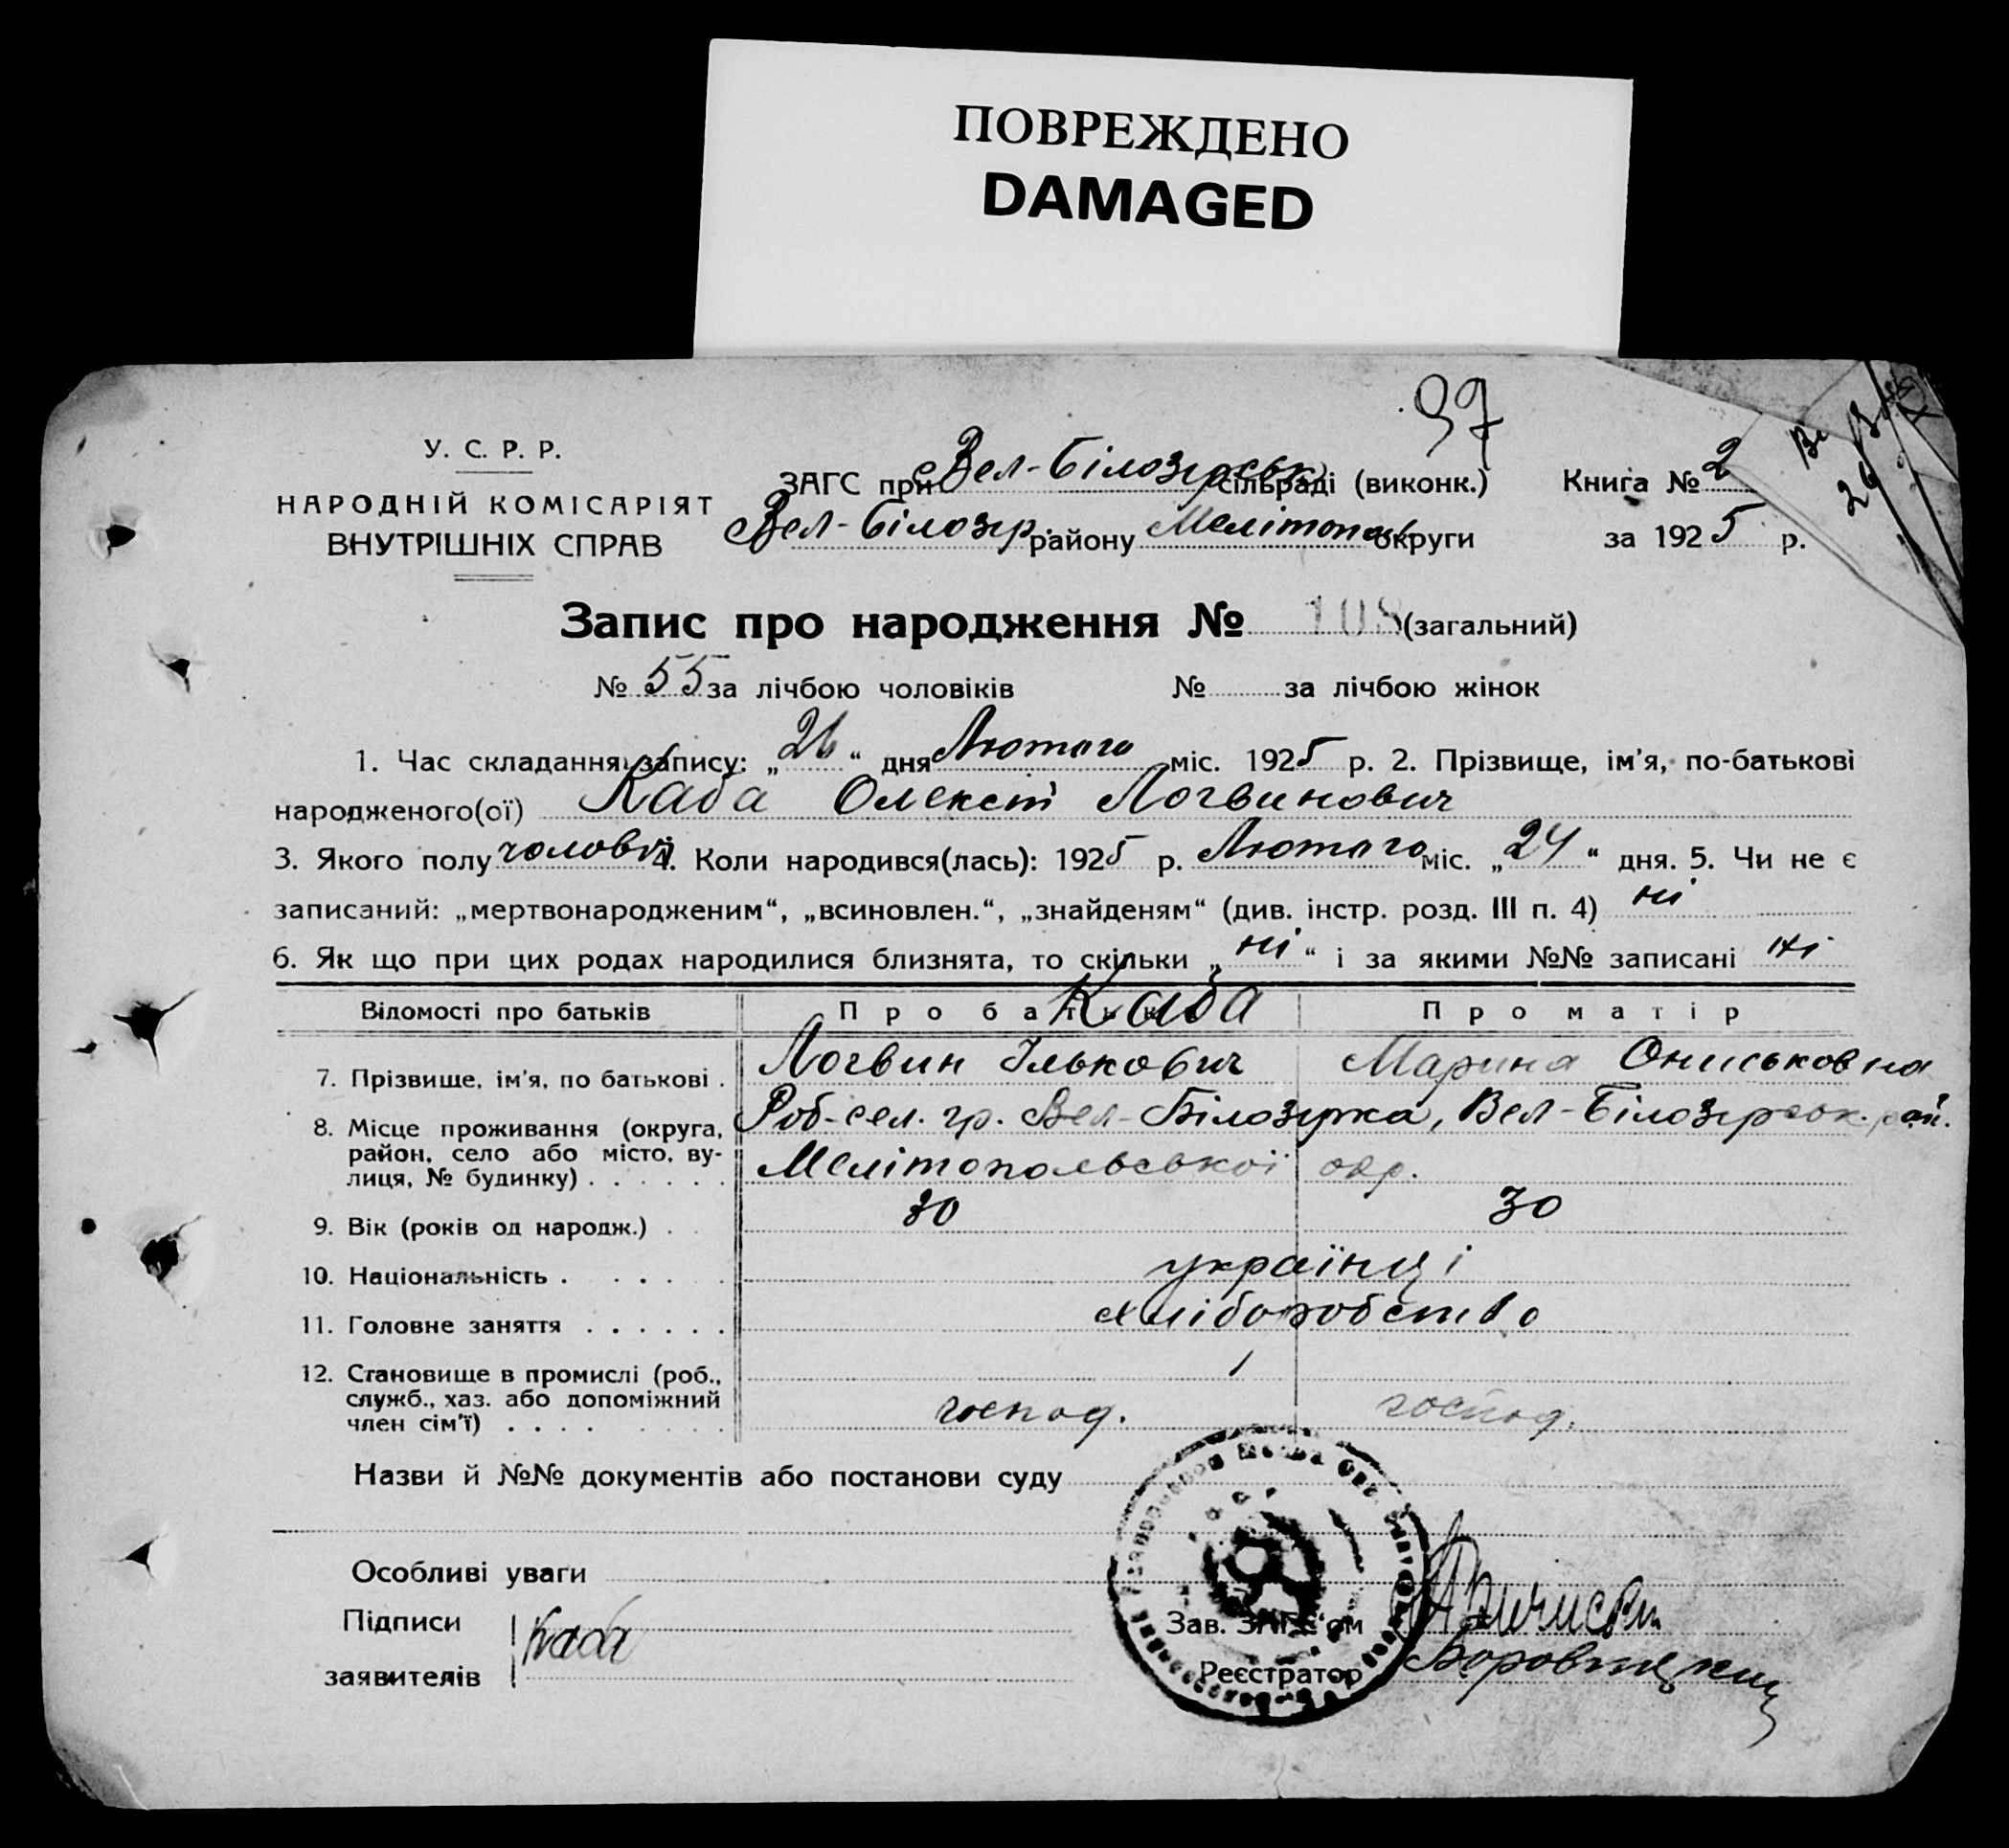 ПОВРЕЖДЕНО
DAMAGED
97
У. С. Р. Р.
НАРОДНІЙ КОМІСАРІЯТ
ВНУТРІШНІХ СПРАВ
ЗАГС при Вел-Білозірськ сільраді (виконк.)
Вел-Білозір району Мелітополь округи
Книга № 2
за 1925 р.
Запис про народження № 108 (загальний)
№ 55 за лічбою чоловіків № за лічбою жінок
1. Час складання запису: „26“ дня Лютого міс. 1925 р. 2. Прізвище, ім'я, по-батькові
народженого(ої) Каба Олексій Логвинович
3. Якого полу чоловіч 4. Коли народився(лась): 1925 р. Лютого міс. „24“ дня. 5. Чи не є
записаний: „мертвонародженим“, „всиновлен.“, „знайденям“ (див. інстр. розд. III п. 4) ні
6. Як що при цих родах народилися близнята, то скільки „ні“ і за якими №№ записані ні
Відомості про батьків Про батька Про матір
Каба
7. Прізвище, ім'я, по батькові . Логвин Ількович Марина Ониськовна
8. Місце проживання (округа, Роб-сел. гр. Вел-Білозірка, Вел-Білозірськ. рай.
район, село або місто, ву-
лиця, № будинку) . . . . . . Мелітопольської окр.
9. Вік (років од народж.) . . 30 30
10. Національність . . . . . українці
11. Головне заняття . . . . . . хліборобство
12. Становище в промислі (роб.,
служб., хаз. або допоміжний
член сім'ї) . . . . . . . . господ. господ.
Назви й №№ документів або постанови суду
Особливі уваги
Підписи
заявителів Каба
Зав. ЗАГС'ом
Реєстратор